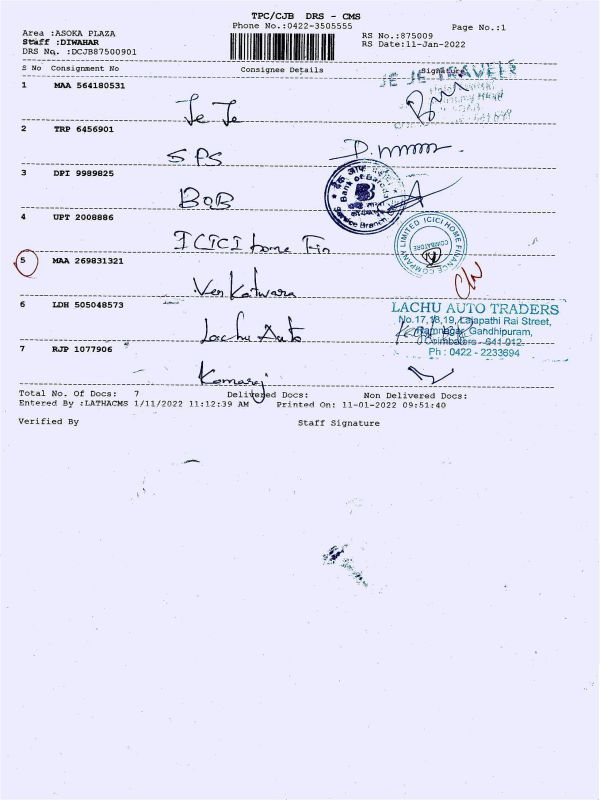 TPC/CJB DRS - CMS
Phone No.:0422-3505555
Page No.:1
Area :ASOKA PLAZA
Staff :DIWAHAR
DRS No. :DCJB87500901
RS No.:875009
RS Date:11-Jan-2022
S No Consignment No Consignee Details Signature
JE JE TRAVELS
1 MAA 564180531
Je Je
2 TRP 6456901
SPS
3 DPI 9989825
Bank of Baroda
Service Branch
BOB
4 UPT 2008886
ICICI HOME FINANCE COMPANY LIMITED
COIMBATORE
ICICI home Fin
5 MAA 269831321
Venkatwara
6 LDH 505048573
LACHU AUTO TRADERS
No.17,18,19, Lajapathi Rai Street,
Ramnagar, Gandhipuram,
Coimbatore - 641 012.
Ph : 0422 - 2233694
Lachu Auto
7 RJP 1077906
Kamaraj
Total No. Of Docs: 7 Delivered Docs: Non Delivered Docs:
Entered By :LATHACMS 1/11/2022 11:12:39 AM Printed On: 11-01-2022 09:51:40
Verified By Staff Signature